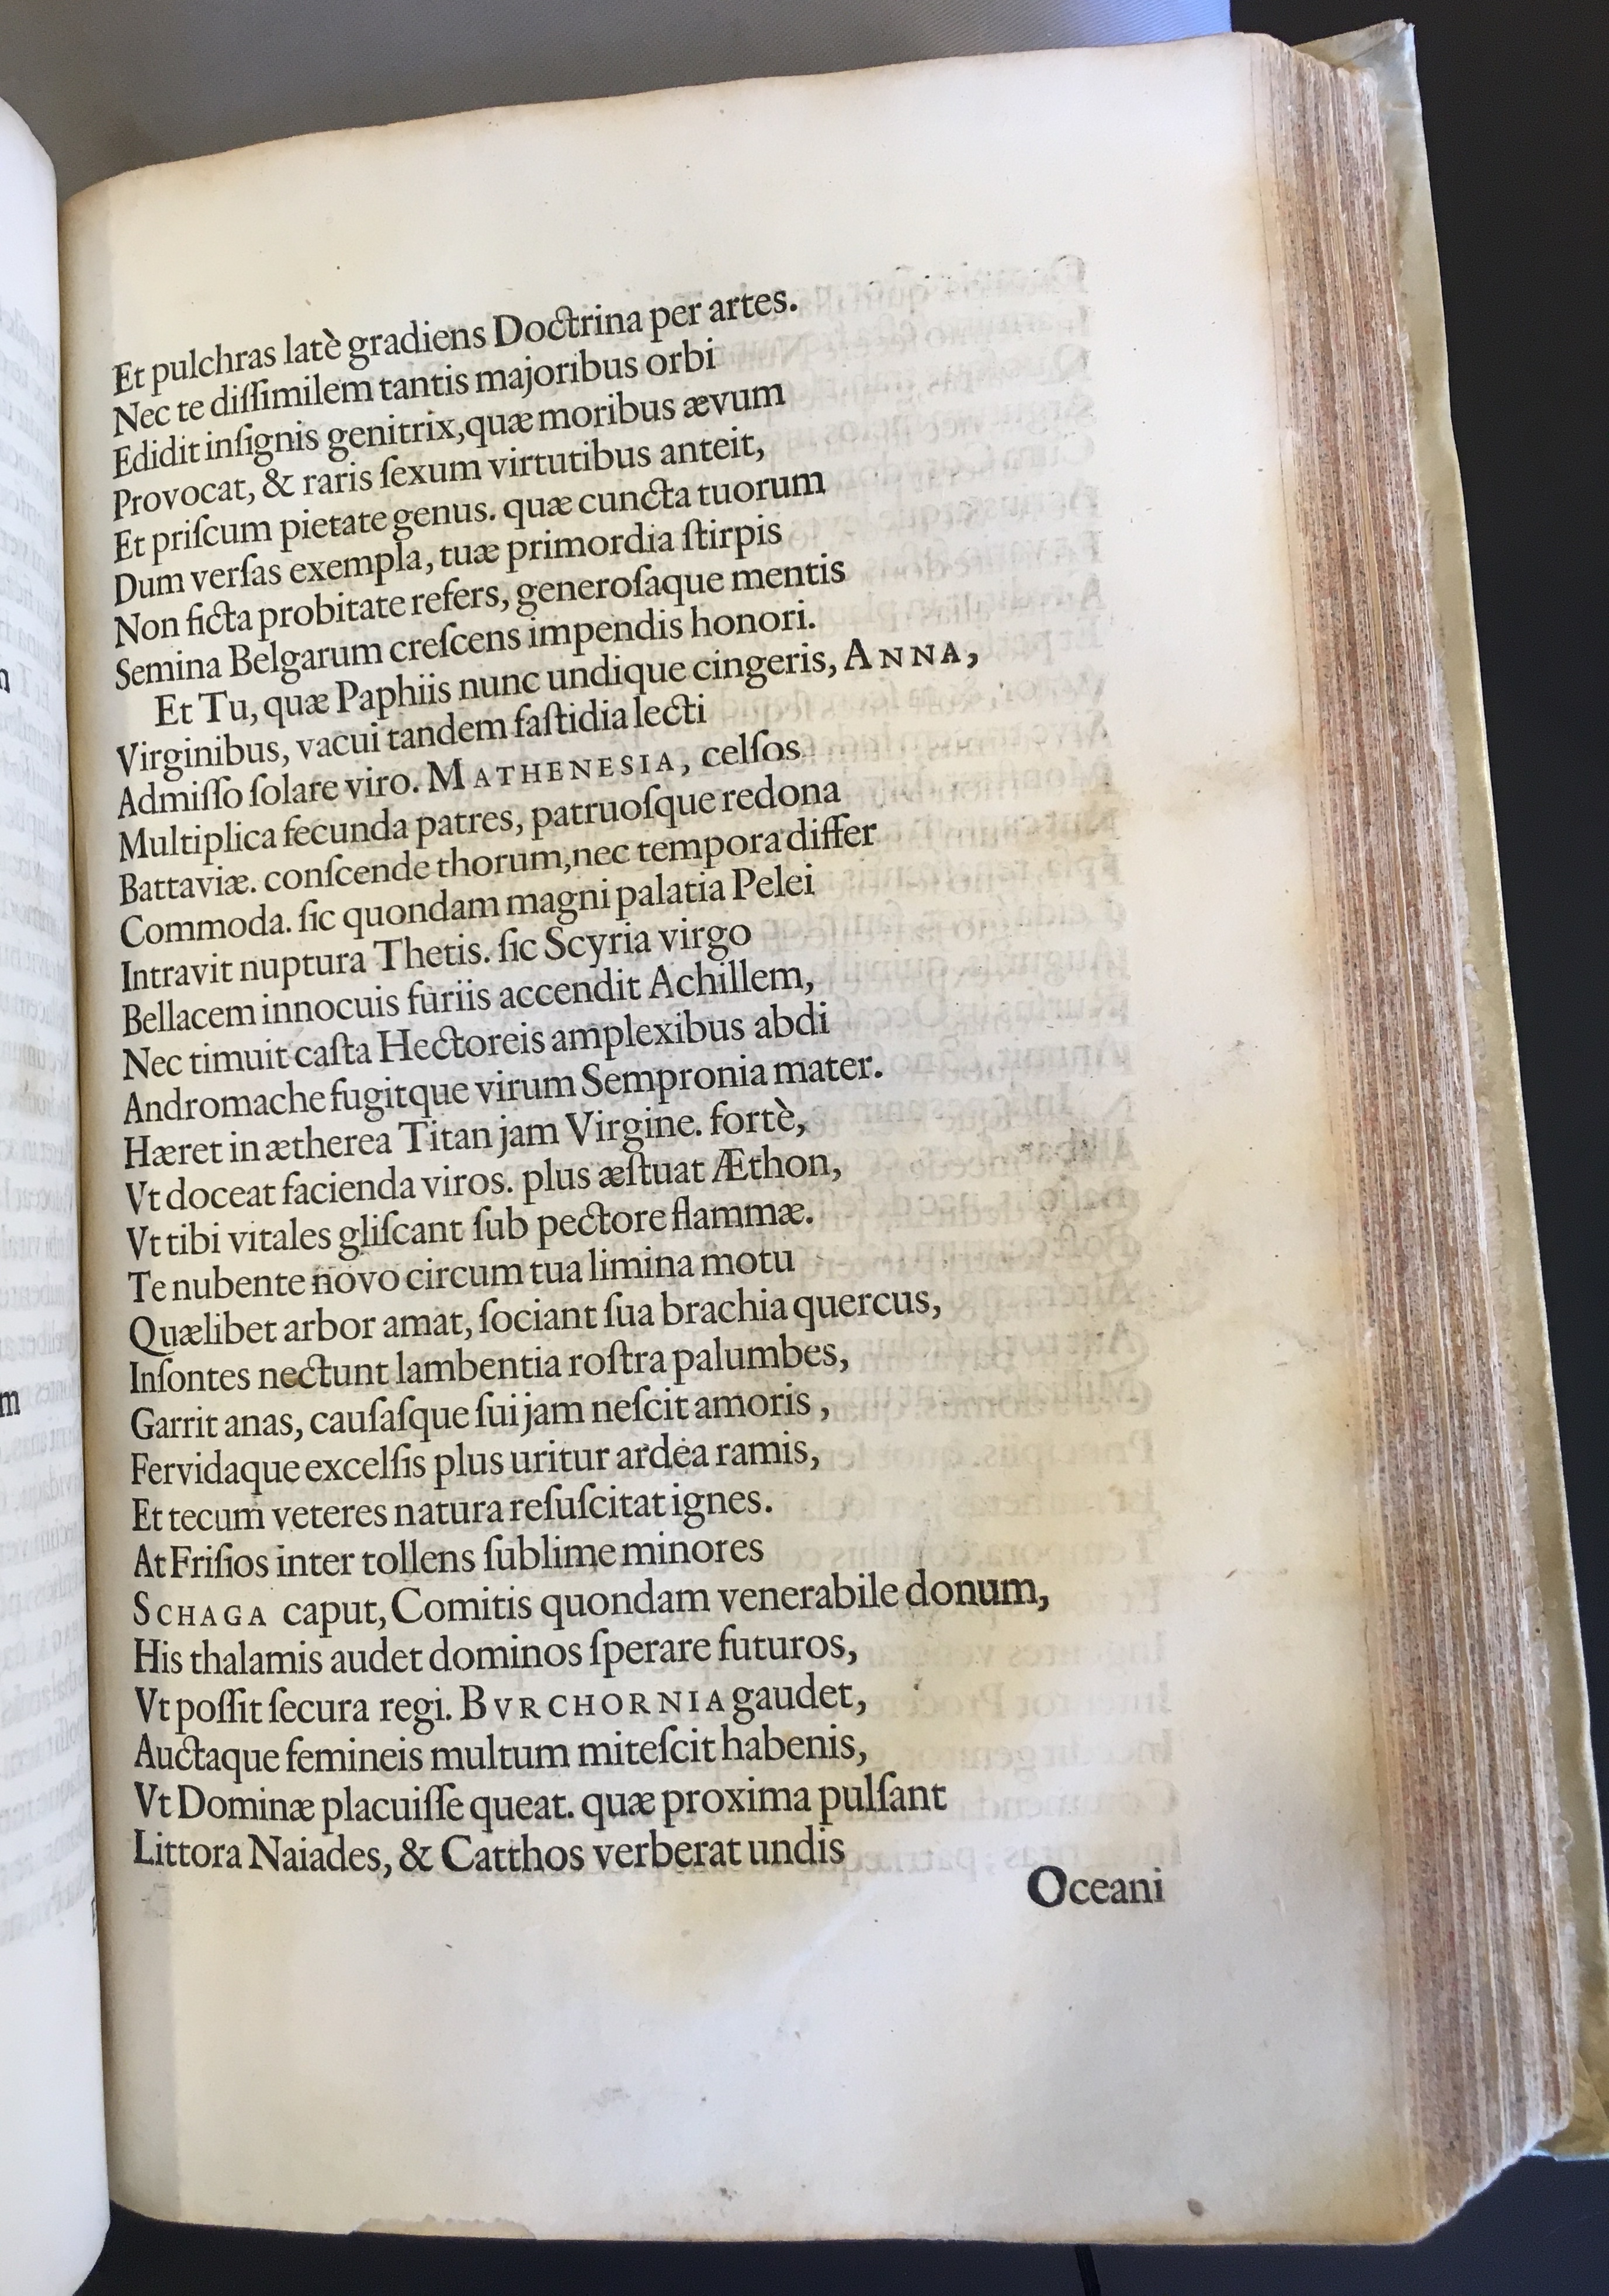 Et pulchras latè gradiens Doctrina per artes.
Nec te diſſimilem tantis majoribus orbi
Edidit inſignis genitrix, quæ moribus ævum
Provocat, & raris ſexum virtutibus anteit,
Et priſcum pietate genus. quæ cuncta tuorum
Dum verſas exempla, tuæ primordia ſtirpis
Non ficta probitate refers, generoſaque mentis
Semina Belgarum creſcens impendis honori.
Et Tu, quæ Paphiis nunc undique cingeris, ANNA,
Virginibus, vacui tandem faſtidia lecti
Admiſſo ſolare viro. MATHENESIA, celſos
Multiplica fecunda patres, patruoſque redona
Battaviæ. conſcende thorum, nec tempora differ
Commoda. ſic quondam magni palatia Pelei
Intravit nuptura Thetis. ſic Scyria virgo
Bellacem innocuis furiis accendit Achillem,
Nec timuit caſta Hectoreis amplexibus abdi
Andromache fugitque virum Sempronia mater.
Hæret in ætherea Titan jam Virgine. fortè,
Vt doceat facienda viros. plus æſtuat Æthon,
Vt tibi vitales gliſcant ſub pectore flammæ.
Te nubente novo circum tua limina motu
Quælibet arbor amat, ſociant ſua brachia quercus,
Inſontes nectunt lambentia roſtra palumbes,
Garrit anas, cauſaſque ſui jam neſcit amoris,
Fervidaque excelſis plus uritur ardea ramis,
Et tecum veteres natura reſuſcitat ignes.
At Friſios inter tollens ſublime minores
SCHAGA caput, Comitis quondam venerabile donum,
His thalamis audet dominos ſperare futuros,
Vt poſſit ſecura regi. BVRCHORNIA gaudet,
Auctaque femineis multum miteſcit habenis,
Vt Dominæ placuiſſe queat. quæ proxima pulſant
Littora Naiades, & Catthos verberat undis
Oceani